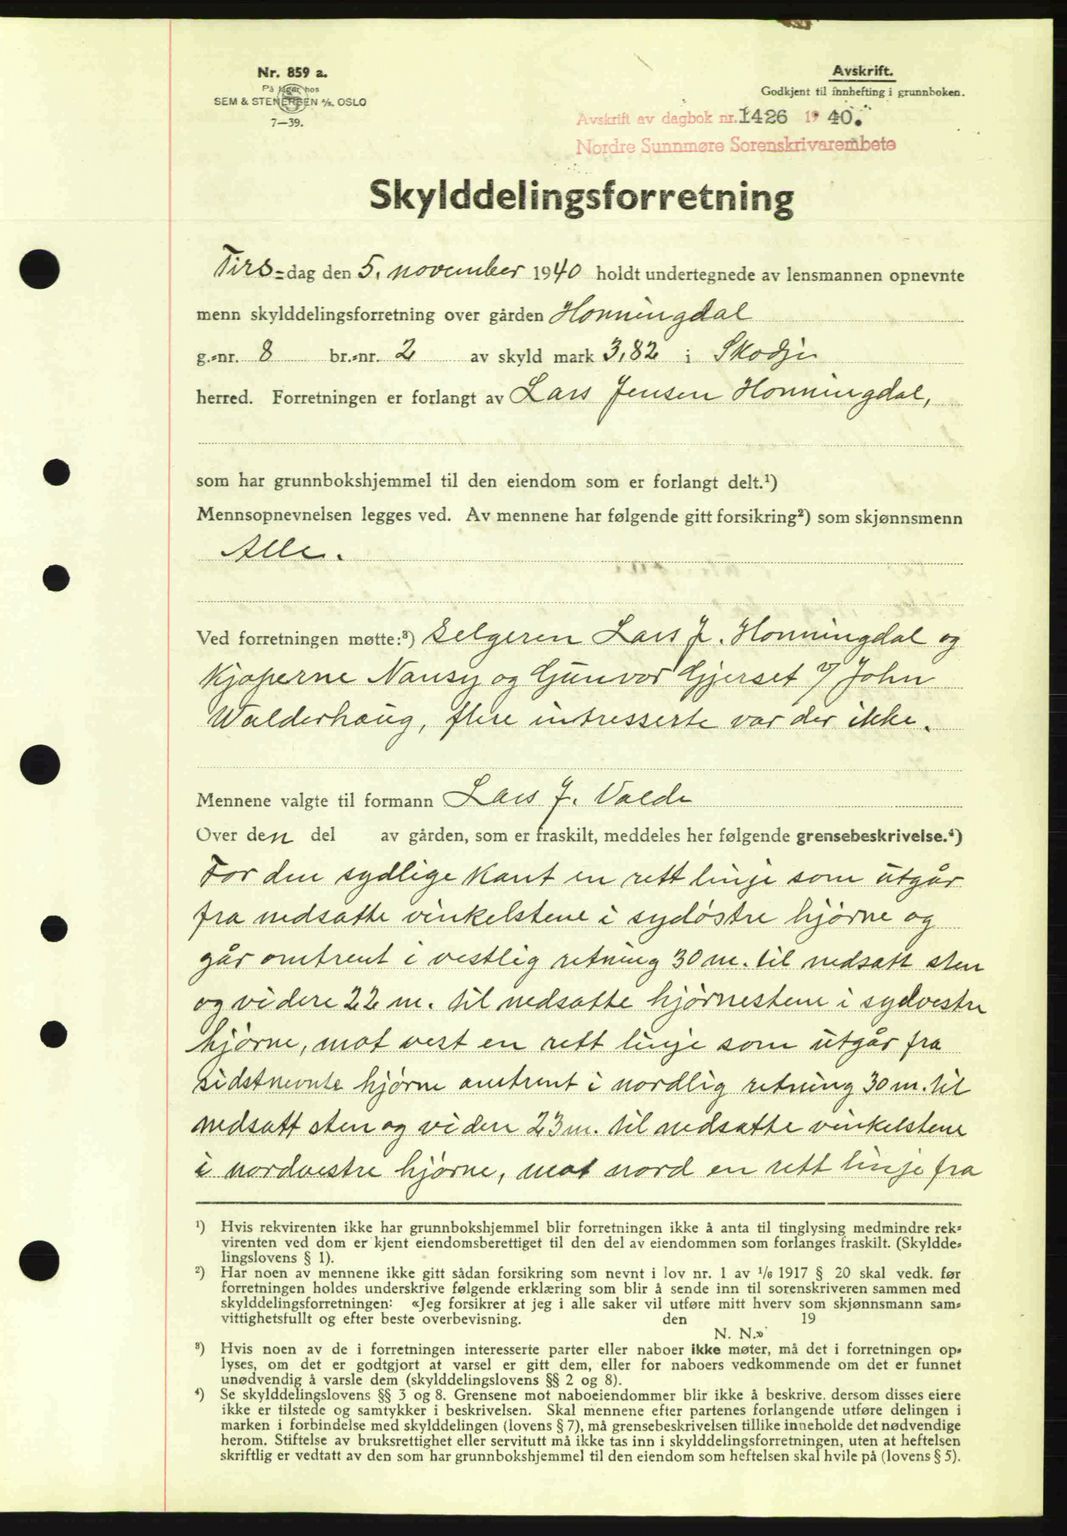 Nr. 859 a.
På lager hos
SEM & STENERSEN A/S, OSLO
7—39.
Avskrift.
Godkjent til innhefting i grunnboken.
Avskrift av dagbok nr. 1426 19 40.
Nordre Sunnmøre Sorenskrivarembete
Skylddelingsforretning
Tirs-dag den 5. november 1940 holdt undertegnede av lensmannen opnevnte
menn skylddelingsforretning over gården Honningdal
g.-nr. 8 br.-nr. 2 av skyld mark 3,82 i Skodje
herred. Forretningen er forlangt av Lars Jensen Honningdal,
som har grunnbokshjemmel til den eiendom som er forlangt delt.¹)
Mennsopnevnelsen legges ved. Av mennene har følgende gitt forsikring²) som skjønnsmenn
Alle.
Ved forretningen møtte:³) Selgeren Lars J. Honningdal og
Kjøperne Nansy og Gunvor Gjerset v/ John
Walderhaug, flere intresserte var der ikke.
Mennene valgte til formann Lars J. Valde
Over den del av gården, som er fraskilt, meddeles her følgende grensebeskrivelse.⁴)
For den sydlige kant en rett linje som utgår
fra nedsatte vinkelstene i sydøstre hjørne og
går omtrent i vestlig retning 30 m. til nedsatt sten
og videre 22 m. til nedsatte hjørnestene i sydvestre
hjørne, mot vest en rett linje som utgår fra
sidstnevnte hjørne omtrent i nordlig retning 30 m. til
nedsatt sten og videre 23 m. til nedsatte vinkelstene
i nordvestre hjørne, mot nord en rett linje fra
¹) Hvis rekvirenten ikke har grunnbokshjemmel blir forretningen ikke å anta til tinglysing medmindre rek-
virenten ved dom er kjent eiendomsberettiget til den del av eiendommen som forlanges fraskilt. (Skyldde-
lingslovens § 1).
²) Har noen av mennene ikke gitt sådan forsikring som nevnt i lov nr. 1 av 1/6 1917 § 20 skal vedk. før
forretningen holdes underskrive følgende erklæring som blir å sende inn til sorenskriveren sammen med
skylddelingsforretningen: «Jeg forsikrer at jeg i alle saker vil utføre mitt hverv som skjønnsmann sam-
vittighetsfullt og efter beste overbevisning. den 19
N. N.»
³) Hvis noen av de i forretningen interesserte parter eller naboer ikke møter, må det i forretningen op-
lyses, om det er godtgjort at varsel er gitt dem, eller for naboers vedkommende om det er funnet
unødvendig å varsle dem (skylddelingslovens §§ 2 og 8).
⁴) Se skylddelingslovens §§ 3 og 8. Grensene mot naboeiendommer blir ikke å beskrive. dersom disses eiere
ikke er tilstede og samtykker i beskrivelsen. Skal mennene efter partenes forlangende utføre delingen i
marken i forbindelse med skylddelingen (lovens § 7), må grensebeskrivelsen tillike inneholde det nødvendige
herom. Stiftelse av bruksrettighet eller servitutt må ikke tas inn i skylddelingsforretningen, uten at heftelsen
skriftlig er vedtatt av den som har grunnbokshjemmel til den eiendom som heftelsen skal hvile på (lovens § 5).